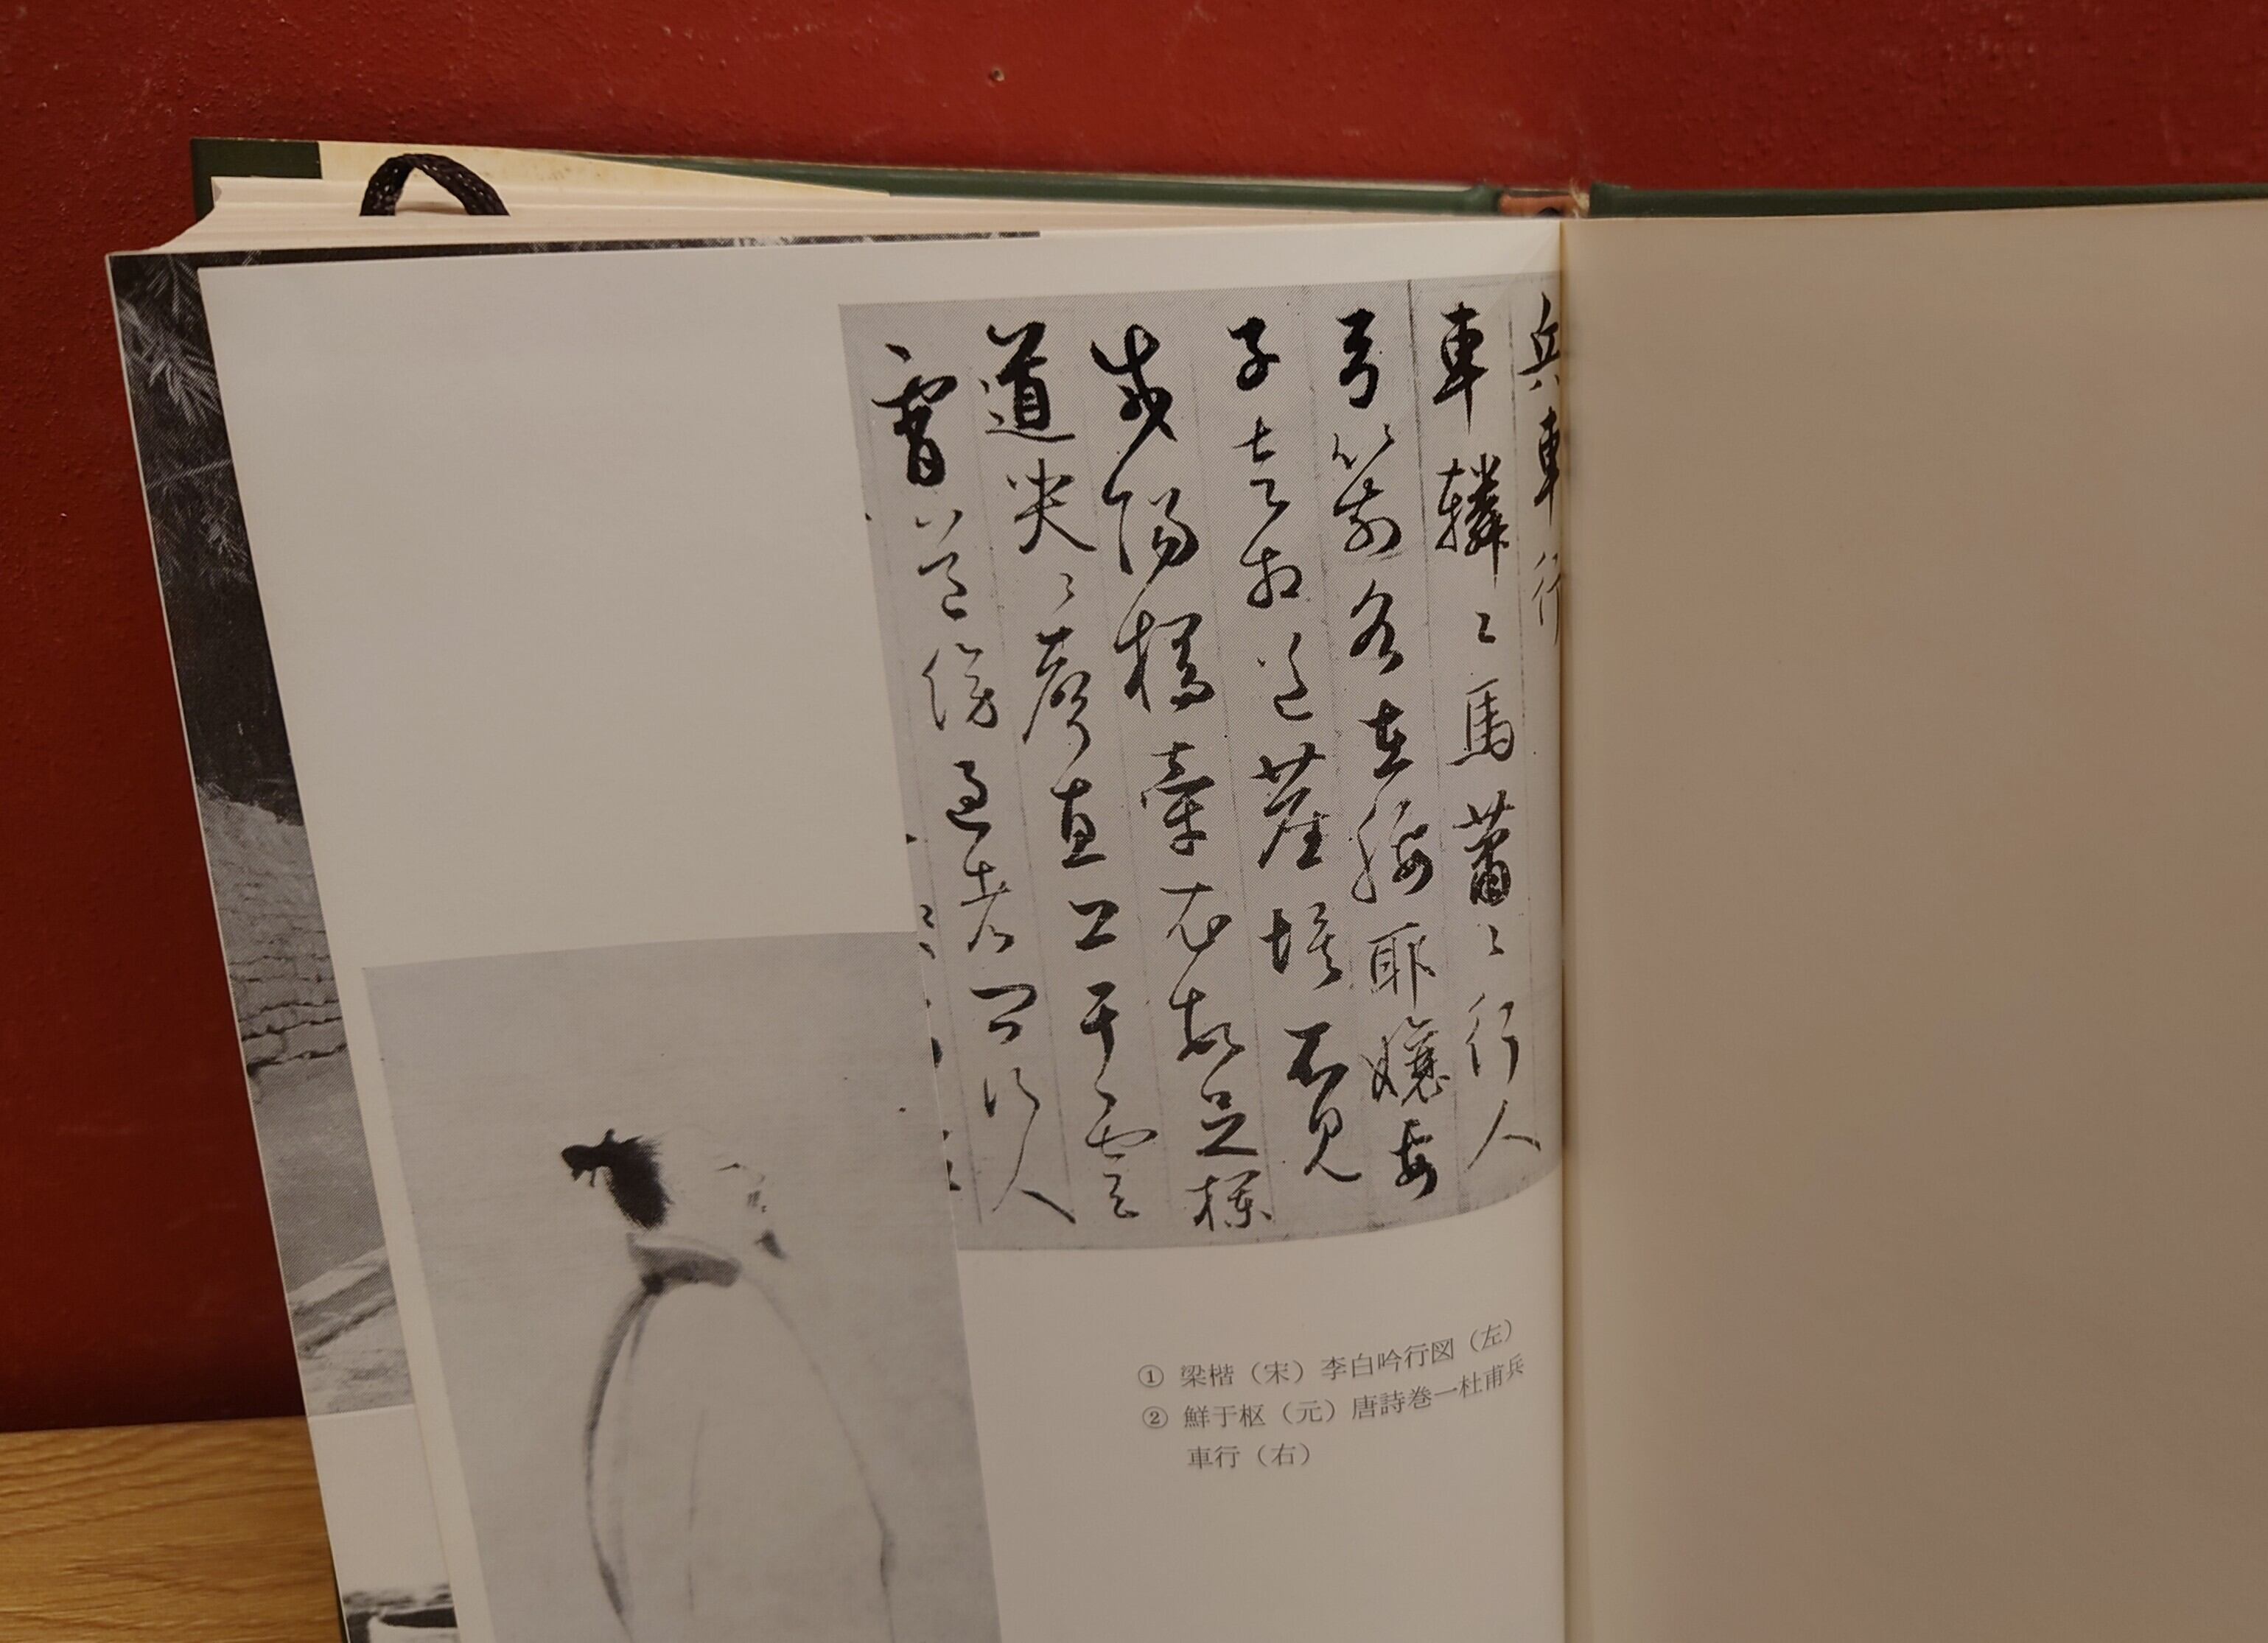 兵車行
車轔〻馬蕭〻行人
弓箭各在腰耶孃妻
子走相送塵埃不見
咸陽橋牽衣頓足攔
道哭〻聲直上干雲
霄道傍過者問行人
① 梁楷（宋）李白吟行図（左）
② 鮮于枢（元）唐詩巻一杜甫兵
車行（右）